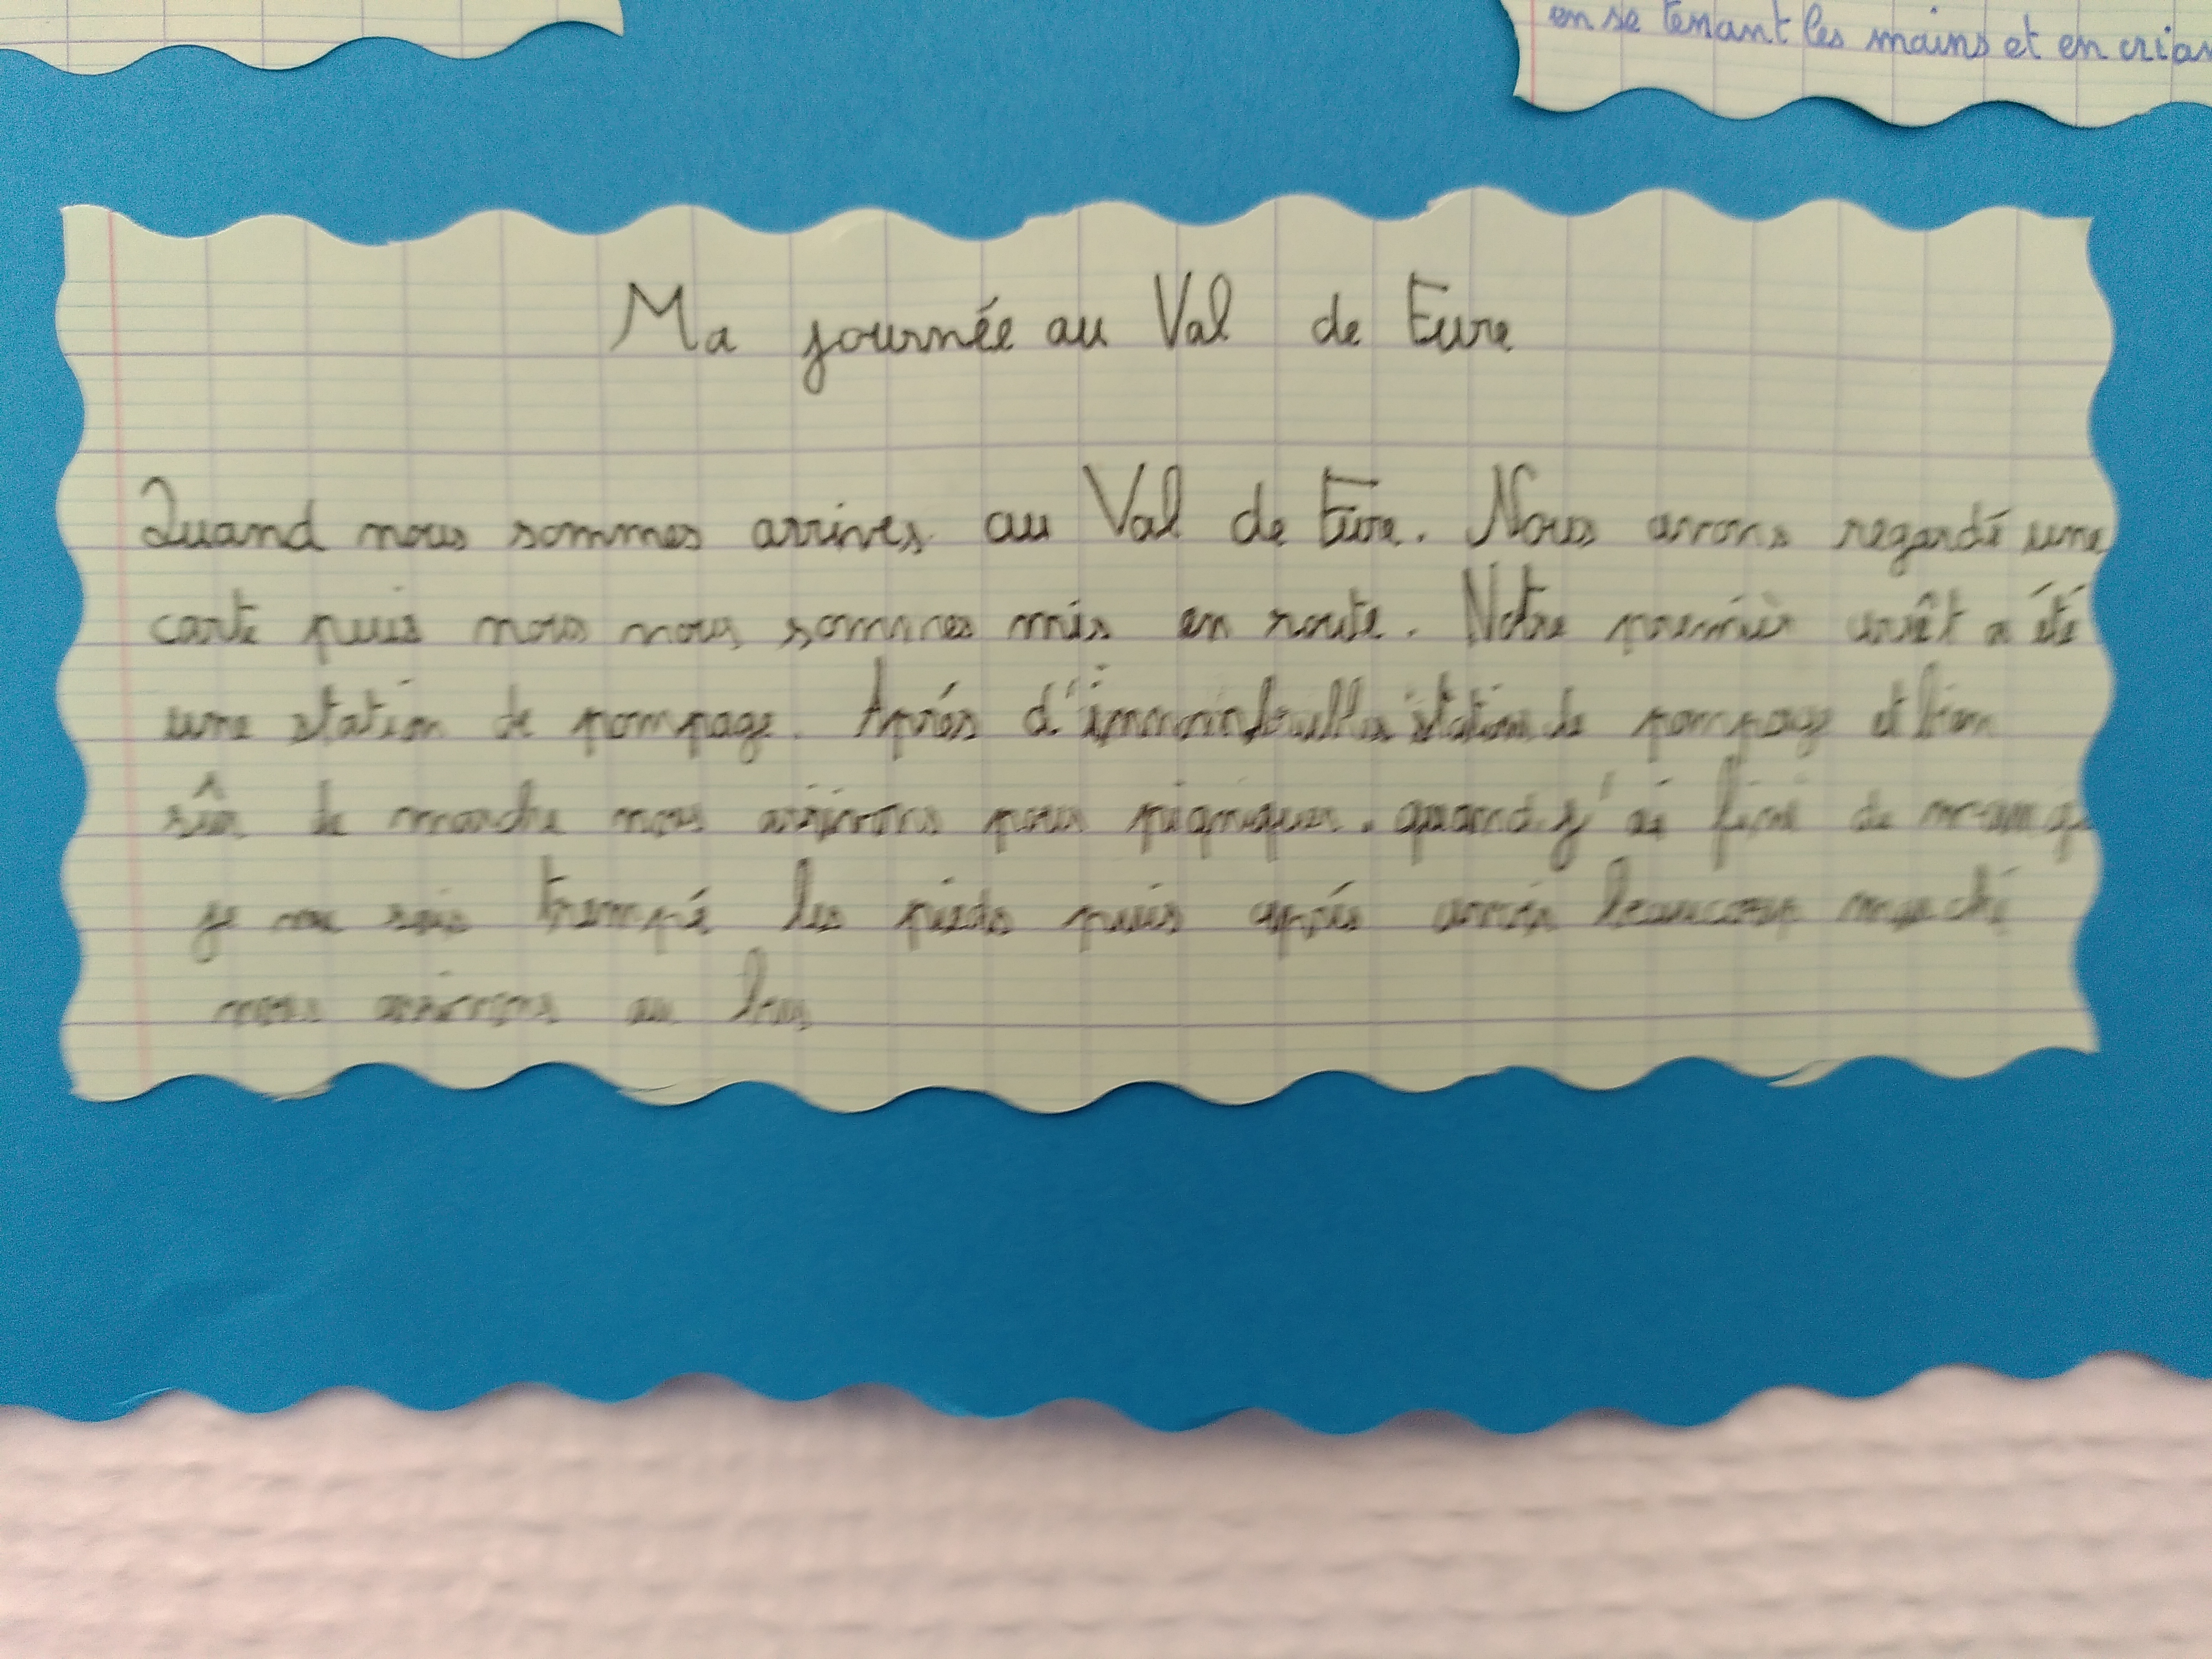 en se tenant les mains et en crian
Ma journée au Val de Eure
Quand nous sommes arrives au Val de Eure. Nous avons regardé une
carte puis nous nous sommes mis en route. Notre premièr arrêt a été
une station de pompage. Aprés station de pompage et bien
sûr de marche nous arrivons pour pigniquer. quand j'ai fini de mange
je me suis trempé les pieds puis aprés avroir beaucoup marché
nous arrivons au bus